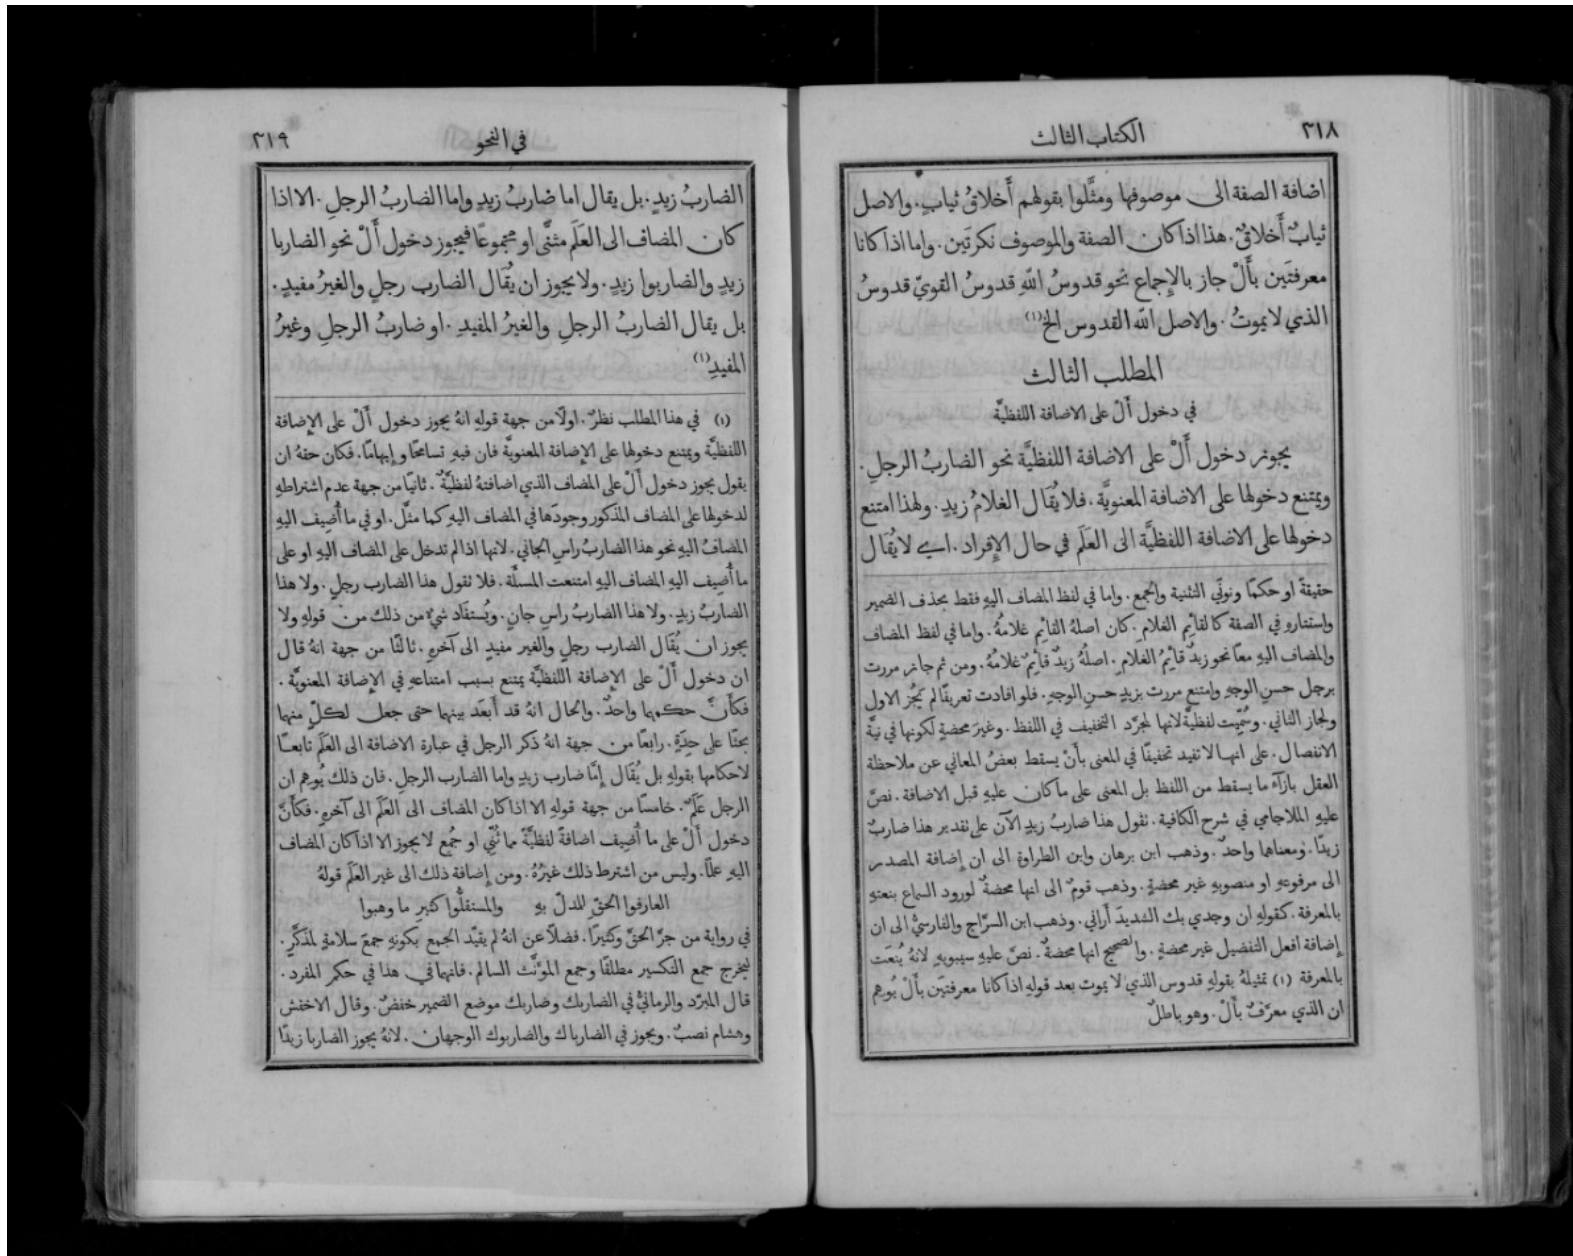 ٣١٨
الكتاب الثالث
اضافة الصفة الى موصوفها ومثَّلوا بقولهم أَخلاقُ ثيابٍ. والاصل
ثيابٌ أَخلاقٌ. هذا اذا كان الصفة والموصوف نكرتَين. واما اذا كانا
معرفتَين بأَلْ جاز بالإجماع نحو قدوسُ اللهِ قدوسُ القويّ قدوسُ
الذي لا يموتُ. والاصل الله القدوس الخ(١)
المطلب الثالث
في دخول أَلْ على الاضافة اللفظيَّة
يجوز دخول أَلْ على الاضافة اللفظيَّة نحو الضاربُ الرجلِ.
ويمتنع دخولها على الاضافة المعنويَّة. فلا يُقَال الغلامُ زيدٍ. ولهذا امتنع
دخولها على الاضافة اللفظيَّة الى العَلَم في حال الإفراد. اي لا يُقَال
حقيقةً او حكمًا ونونَي التثنية والجمع. واما في لفظ المضاف اليهِ فقط بحذف الضمير
واستتارهِ في الصفة كالقايِم الغلامِ. كان اصلهُ القايِم غلامُهُ. واما في لفظ المضاف
والمضاف اليهِ معًا نحو زيدٌ قايِمُ الغلامِ. اصلُهُ زيدٌ قايِمٌ غلامُهُ. ومن ثم جاز مررت
برجل حسنِ الوجهِ وامتنع مررت بزيدٍ حسنِ الوجهِ. فلو افادت تعريفًا لم يَجُز الاول
ولجاز الثاني. وسُمِّيت لفظيَّة لانها لمجرّد التخفيف في اللفظ. وغيرَ محضةٍ لكونها في نيَّة
الانفصال. على انهـا لا تفيد تخفيفًا في المعنى بأَنْ يسقط بعضُ المعاني عن ملاحظة
العقل بازآءِ ما يسقط من اللفظ بل المعنى على ما كان عليهِ قبل الاضافة. نصَّ
عليهِ الملاجامي في شرح الكافية. نقول هذا ضاربُ زيدٍ الآنَ على نقدير هذا ضاربٌ
زيدًا. ومعناها واحدٌ. وذهب ابن برهان وابن الطراوة الى ان إضافة المصدر
الى مرفوعهِ او منصوبهِ غير محضةٍ. وذهب قومٌ الى انها محضةٌ لورود السماع بنعتهِ
بالمعرفة. كقولهِ ان وجدي بك الشديدَ أَراني. وذهب ابن السرّاج والفارسيُّ الى ان
إضافة أفعل التفضيل غير محضةٍ. والصحيح انها محضةٌ. نصَّ عليهِ سيبويهِ لانهُ يُنعَت
بالمعرفة (١) تمثيلهُ بقولهِ قدوس الذي لا يموت بعد قولهِ اذا كانا معرفتَين بأَلْ يُوهم
ان الذي معرَّفٌ بأَلْ. وهو باطلٌ
في النحو
٣١٩
الضاربُ زيدٍ. بل يقال اما ضاربُ زيدٍ واما الضاربُ الرجلِ. الا اذا
كان المضاف الى العَلَم مثنًّى او مجموعًا فيجوز دخول أَلْ نحو الضاربا
زيدٍ والضاربوا زيدٍ. ولا يجوز ان يُقَال الضارب رجلٍ والغيرُ مفيدٍ.
بل يقال الضاربُ الرجلِ والغيرُ المفيدِ. او ضاربُ الرجلِ وغيرُ
المفيدِ(١)
(١) في هذا المطلب نظرٌ. اولًا من جهة قولهِ انهُ يجوز دخول أَلْ على الإضافة
اللفظيَّة ويمتنع دخولها على الإضافة المعنويَّة فان فيهِ تسامحًا وإيهامًا. فكان حقهُ ان
يقول يجوز دخول أَلْ على المضاف الذي اضافتهُ لفظيَّةٌ. ثانيًا من جهة عدم اشتراطهِ
لدخولها على المضاف المذكور وجودَها في المضاف اليهِ كما مثّل. او في ما أُضِيف اليهِ
المضافُ اليهِ نحو هذا الضاربُ راسِ الجاني. لانها اذا لم تدخل على المضاف اليهِ او على
ما أُضِيف اليهِ المضاف اليهِ امتنعت المسئلة. فلا نقول هذا الضارب رجلٍ. ولا هذا
الضاربُ زيدٍ. ولا هذا الضاربُ راسِ جانٍ. ويُستفَاد شيءٌ من ذلك من قولهِ ولا
يجوز ان يُقَال الضارب رجلٍ والغير مفيدٍ الى آخرهِ. ثالثًا من جهة انهُ قال
ان دخول أَلْ على الإضافة اللفظيَّة يمتنع بسبب امتناعهِ في الإضافة المعنويَّة.
فكأَنَّ حكمهما واحدٌ. والحال انهُ قد أَبعَد بينهما حتى جعل لكلٍّ منهما
بحثًا على حِدَةٍ. رابعًا من جهة انهُ ذكر الرجل في عبارة الاضافة الى العَلَم تابعـًا
لاحكامها بقولهِ بل يُقَال إِمَّا ضارب زيدٍ واما الضارب الرجلِ. فان ذلك يُوهم ان
الرجل عَلَمٌ. خامسًا من جهة قولهِ الا اذا كان المضاف الى العَلَم الى آخرهِ. فكأَنَّ
دخول أَلْ على ما أُضيف اضافةً لفظيَّةً مما ثُنِّي او جُمع لا يجوز الا اذا كان المضاف
اليهِ علمًا. وليس من اشترط ذلك غيرُهُ. ومن إضافة ذلك الى غير العَلَم قولهُ
العارفوا الحقِّ للمدلّ بهِ والمستقلُّوا كثيرِ ما وهبوا
في رواية من جرَّ الحقَّ وكثيرًا. فضلًا عن انهُ لم يقيّد الجمع بكونهِ جمعَ سلامةٍ لمذكَّرٍ.
ليخرج جمع التكسير مطلقًا وجمع المؤَنَّث السالم. فانهما في هذا في حكم المفرد.
قال المبرّد والرمانيُّ في الضاربك وضاربك موضع الضمير خفضٌ. وقال الاخفش
وهشام نصبٌ. ويجوز في الضارباك والضاربوك الوجهان. لانهُ يجوز الضاربا زيدًا